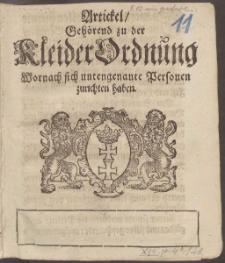 Artickel/
Gehörend zu der
KleiderOrdnung
Wornach sich untengenante Personen
zurichten haben.
11